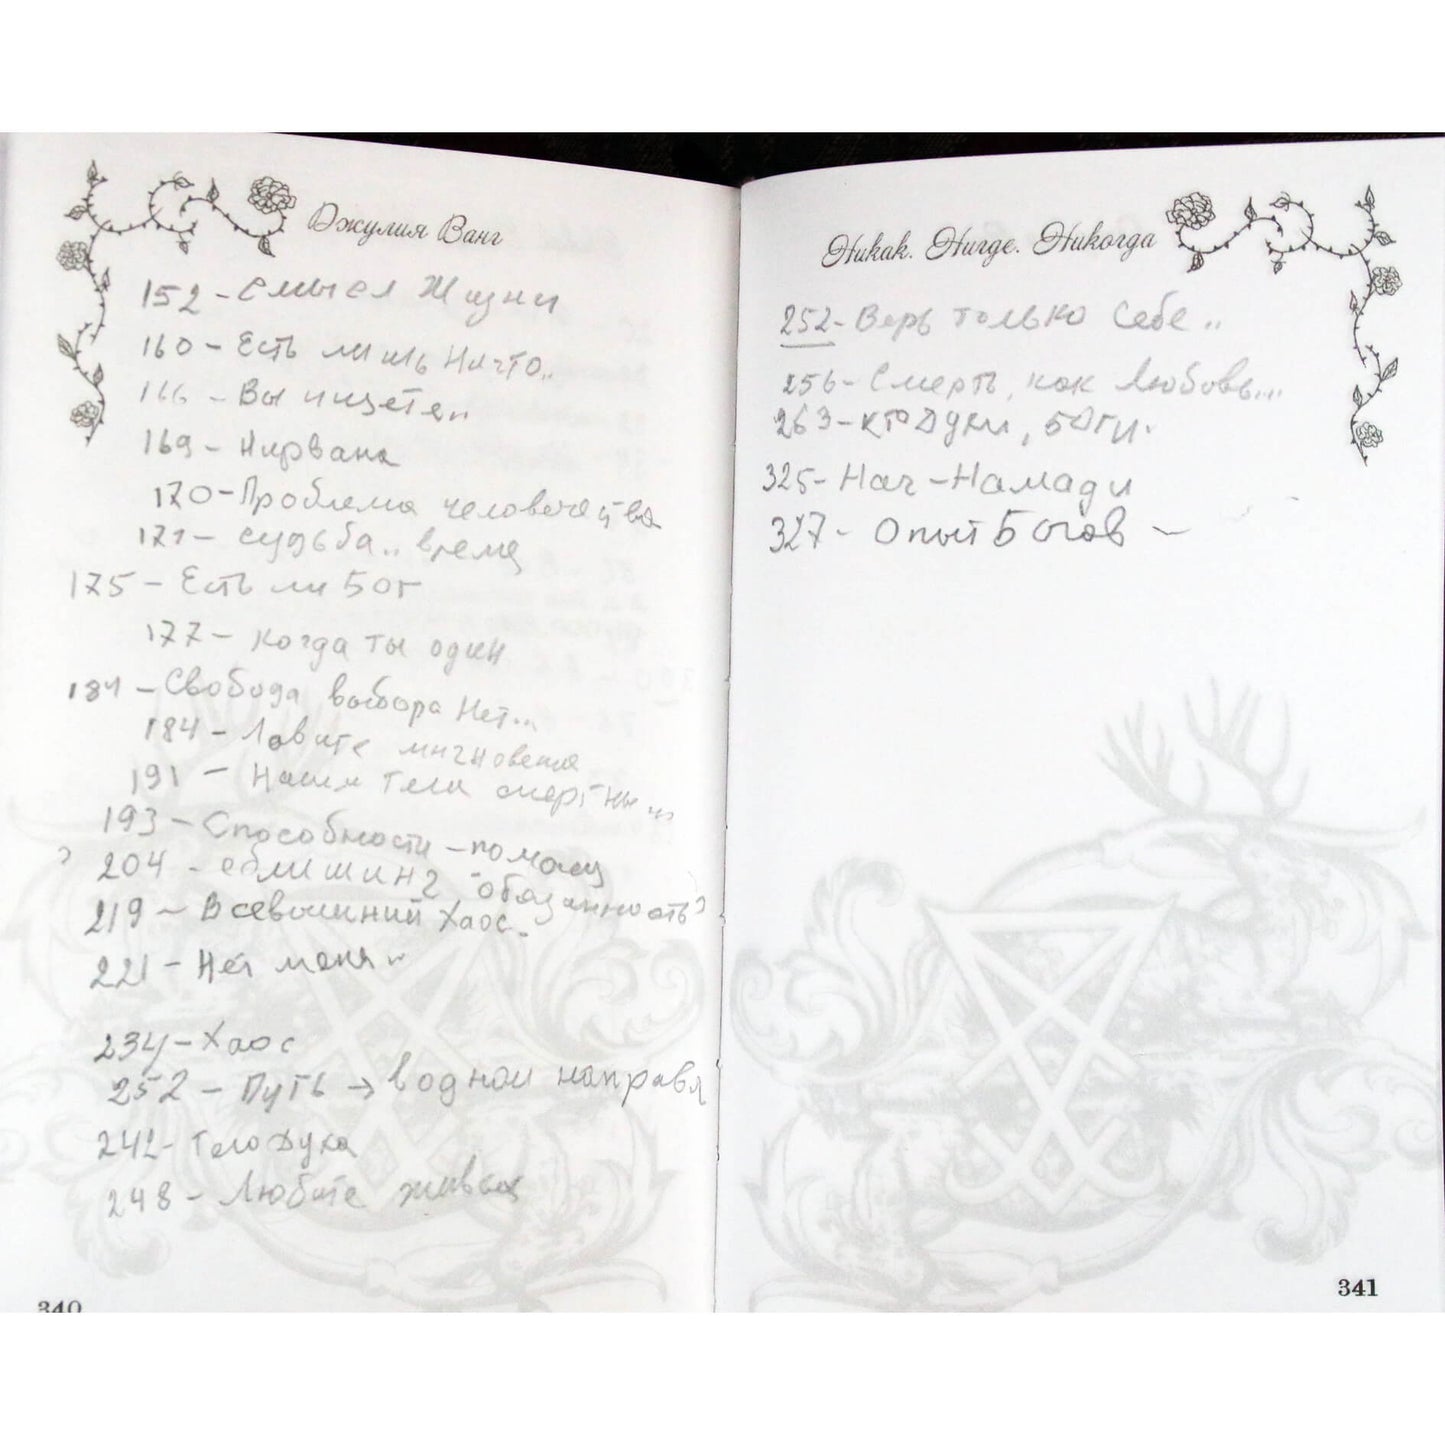 Джулия Ванг
152 - Смысл Жизни
160 - Есть лишь Ничто..
166 - Вы ищете..
169 - Нирвана
170 - Проблема человечества
171 - Судьба.. время
175 - Есть ли Бог
177 - когда ты один
181 - Свобода выбора Нет...
184 - Ловите мгновения
191 - Наши тела смертны...
193 - Способности - помощ
? 204 - облишинг - обязанность?
219 - Всевышний Хаос.
221 - Нет меня
234 - Хаос
252 - Путь → в одном направл
242 - Тело Духа
248 - Любите живых
340
Никак. Нигде. Никогда
252 - Верь только себе..
256 - Смерть, как Любовь...
263 - кто Духи, Боги.
325 - Нач-Намади
327 - Опыт Богов ~
341